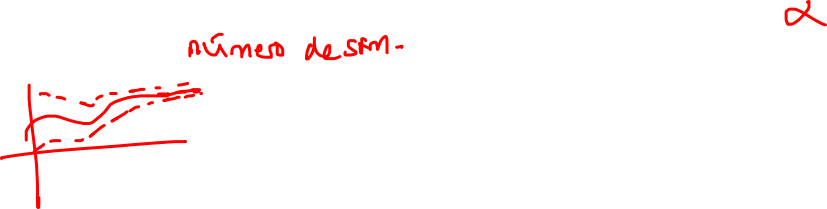 α
número de sim.